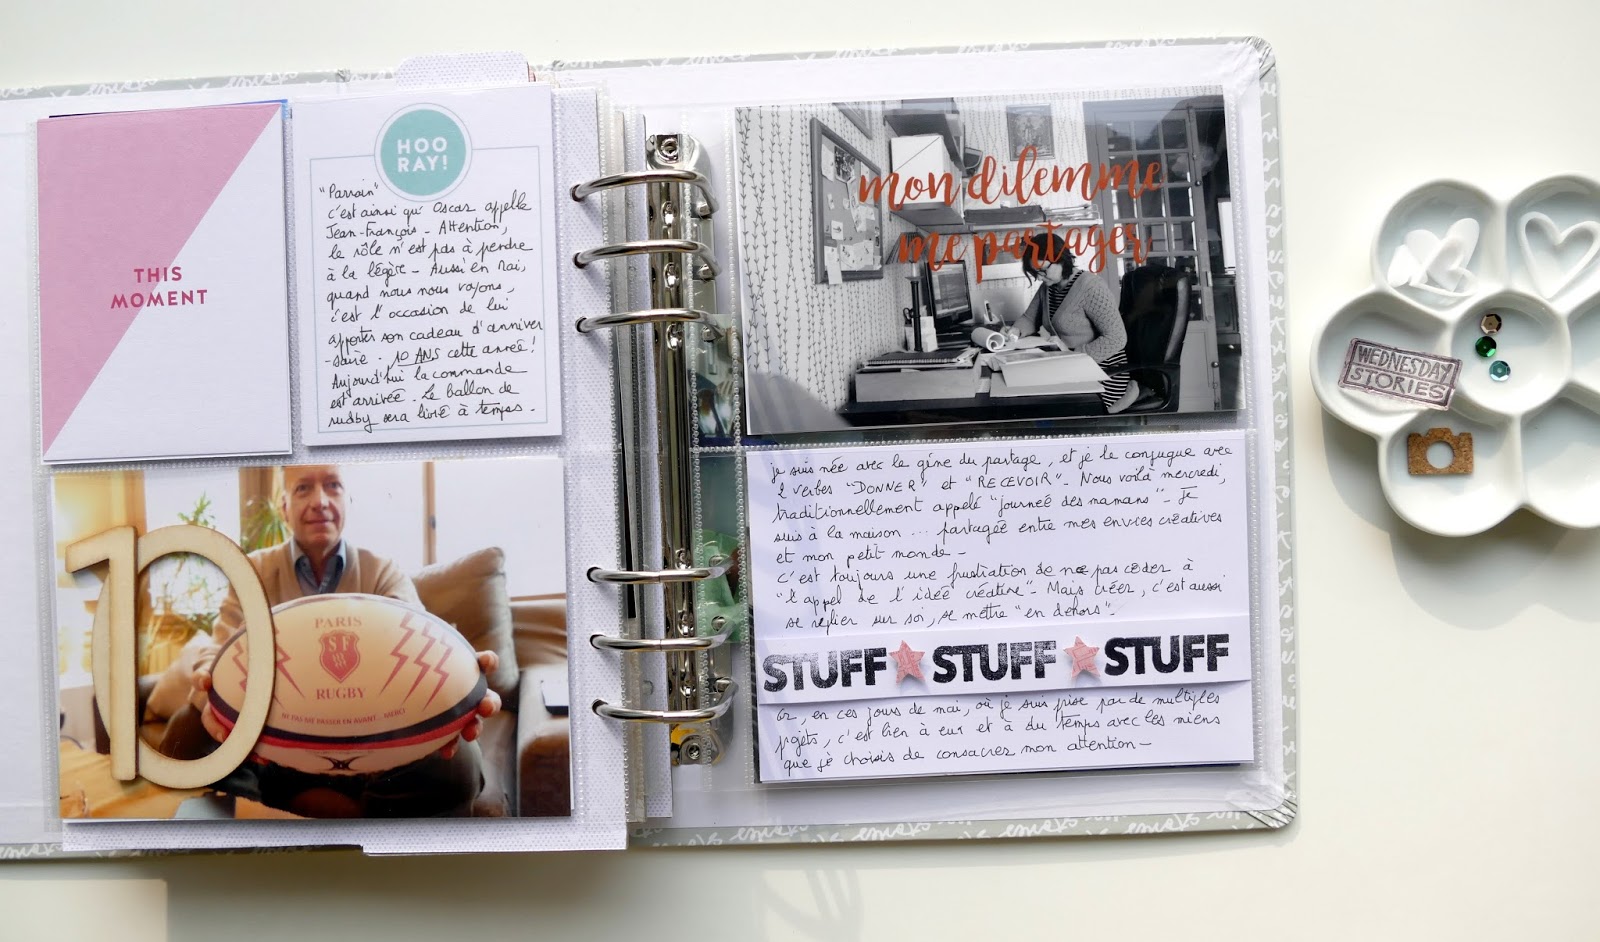 THIS
MOMENT
HOO
RAY!
"Parrain"
c'est ainsi qu'Oscar appelle
Jean-François - Attention,
le rôle n'est pas à prendre
à la légère - Aussi en Mai,
quand nous nous voyons,
c'est l'occasion de lui
apporter son cadeau d'anniver
-saire. 10 ANS cette année!
Aujourd'hui la commande
est arrivée. Le ballon de
rugby sera livré à temps.
10
PARIS
SF
RUGBY
NE PAS PASSER EN AVANT... MERCI
mon dilemme
me partager
je suis née avec le gène du partage, et je le conjugue avec
2 verbes "DONNER" et "RECEVOIR" - Nous voilà mercredi,
traditionnellement appelé "journée des mamans" - Je
suis à la maison ... partagée entre mes envies créatives
et mon petit monde -
c'est toujours une frustration de ne pas céder à
"l'appel de l'idée créative" - Mais créer, c'est aussi
se replier sur soi, se mettre "en dehors" -
STUFF STUFF STUFF
Or, en ces jours de mai, où je suis prise par de multiples
projets, c'est bien à eux et à du temps avec les miens
que je choisis de consacrer mon attention -
WEDNESDAY
STORIES